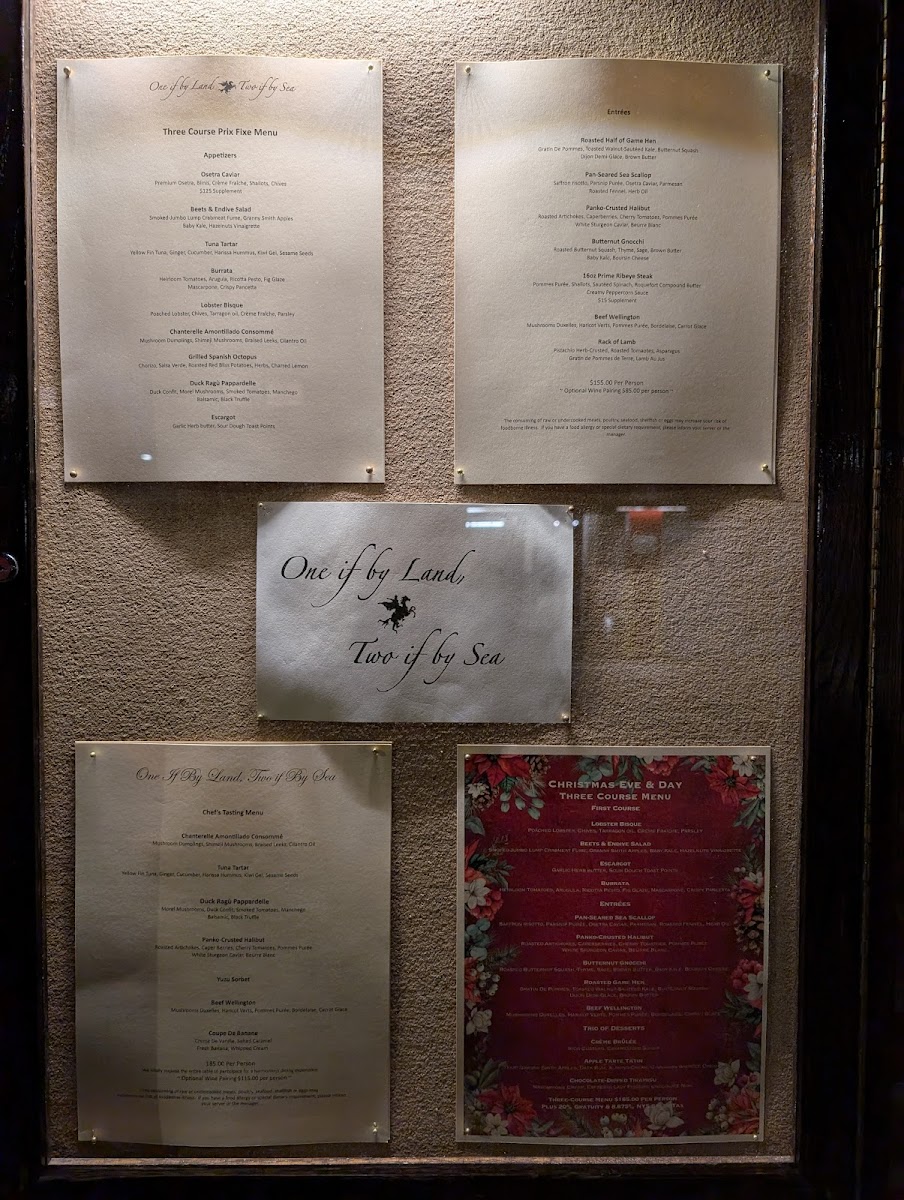 One if by Land Two if by Sea
Three Course Prix Fixe Menu
Appetizers
Osetra Caviar
Premium Osetra, Blinis, Crème Fraîche, Shallots, Chives
$125 Supplement
Beets & Endive Salad
Smoked Jumbo Lump Crabmeat Fume, Granny Smith Apples
Baby Kale, Hazelnuts Vinaigrette
Tuna Tartar
Yellow Fin Tuna, Ginger, Cucumber, Harissa Hummus, Kiwi Gel, Sesame Seeds
Burrata
Heirloom Tomatoes, Arugula, Ricotta Pesto, Fig Glaze
Mascarpone, Crispy Pancetta
Lobster Bisque
Poached Lobster, Chives, Tarragon oil, Crème Fraîche, Parsley
Chanterelle Amontillado Consommé
Mushroom Dumplings, Shimeji Mushrooms, Braised Leeks, Cilantro Oil
Grilled Spanish Octopus
Chorizo, Salsa Verde, Roasted Red Bliss Potatoes, Herbs, Charred Lemon
Duck Ragù Pappardelle
Duck Confit, Morel Mushrooms, Smoked Tomatoes, Manchego
Balsamic, Black Truffle
Escargot
Garlic Herb butter, Sour Dough Toast Points
Entrées
Roasted Half of Game Hen
Gratin De Pommes, Toasted Walnut-Sautéed Kale, Butternut Squash
Dijon Demi Glace, Brown Butter
Pan-Seared Sea Scallop
Saffron risotto, Parsnip Purée, Osetra Caviar, Parmesan
Roasted Fennel, Herb Oil
Panko-Crusted Halibut
Roasted Artichokes, Caperberries, Cherry Tomatoes, Pommes Purée
White Sturgeon Caviar, Beurre Blanc
Butternut Gnocchi
Roasted Butternut Squash, Thyme, Sage, Brown Butter
Baby Kale, Boursin Cheese
16oz Prime Ribeye Steak
Pommes Purée, Shallots, Sautéed Spinach, Roquefort Compound Butter
Creamy Peppercorn Sauce
$15 Supplement
Beef Wellington
Mushrooms Duxelles, Haricot Verts, Pommes Purée, Bordelaise, Carrot Glace
Rack of Lamb
Pistachio Herb-Crusted, Roasted Tomatoes, Asparagus
Gratin de Pommes de Terre, Lamb Au Jus
$155.00 Per Person
~ Optional Wine Pairing $85.00 per person ~
The consuming of raw or undercooked meats, poultry, seafood, shellfish or eggs may increase your risk of
foodborne illness. If you have a food allergy or special dietary requirement, please inform your server or the
manager
One if by Land,
Two if by Sea
One If By Land, Two if By Sea
Chef's Tasting Menu
Chanterelle Amontillado Consommé
Mushroom Dumplings, Shimeji Mushrooms, Braised Leeks, Cilantro Oil
Tuna Tartar
Yellow Fin Tuna, Ginger, Cucumber, Harissa Hummus, Kiwi Gel, Sesame Seeds
Duck Ragù Pappardelle
Morel Mushrooms, Duck Confit, Smoked Tomatoes, Manchego
Balsamic, Black Truffle
Panko-Crusted Halibut
Roasted Artichokes, Caper Berries, Cherry Tomatoes, Pommes Purée
White Sturgeon Caviar Beurre Blanc
Yuzu Sorbet
Beef Wellington
Mushrooms Duxelles, Haricot Verts, Pommes Purée, Bordelaise, Carrot Glace
Coupe De Banane
Crème De Vanille, Salted Caramel
Fresh Banana, Whipped Cream
185.00 Per Person
We kindly request the entire table to participate for a harmonious dining experience
~ Optional Wine Pairing $115.00 per person ~
Christmas Eve & Day
Three Course Menu
First Course
Lobster Bisque
Poached Lobster, Chives, Tarragon oil, Crème Fraîche, Parsley
Beets & Endive Salad
Escargot
Garlic Herb butter, Sour Dough Toast Points
Burrata
Heirloom Tomatoes, Arugula, Ricotta Pesto, Fig Glaze, Mascarpone, Crispy Pancetta
Entrées
Pan-Seared Sea Scallop
Panko-Crusted Halibut
Butternut Gnocchi
Roasted Game Hen
Beef Wellington
Trio of Desserts
Crème Brûlée
Apple Tarte Tatin
Chocolate-Dipped Tiramisu
Three-Course Menu $185.00 per person
Plus 20% Gratuity & 8.875% NYS